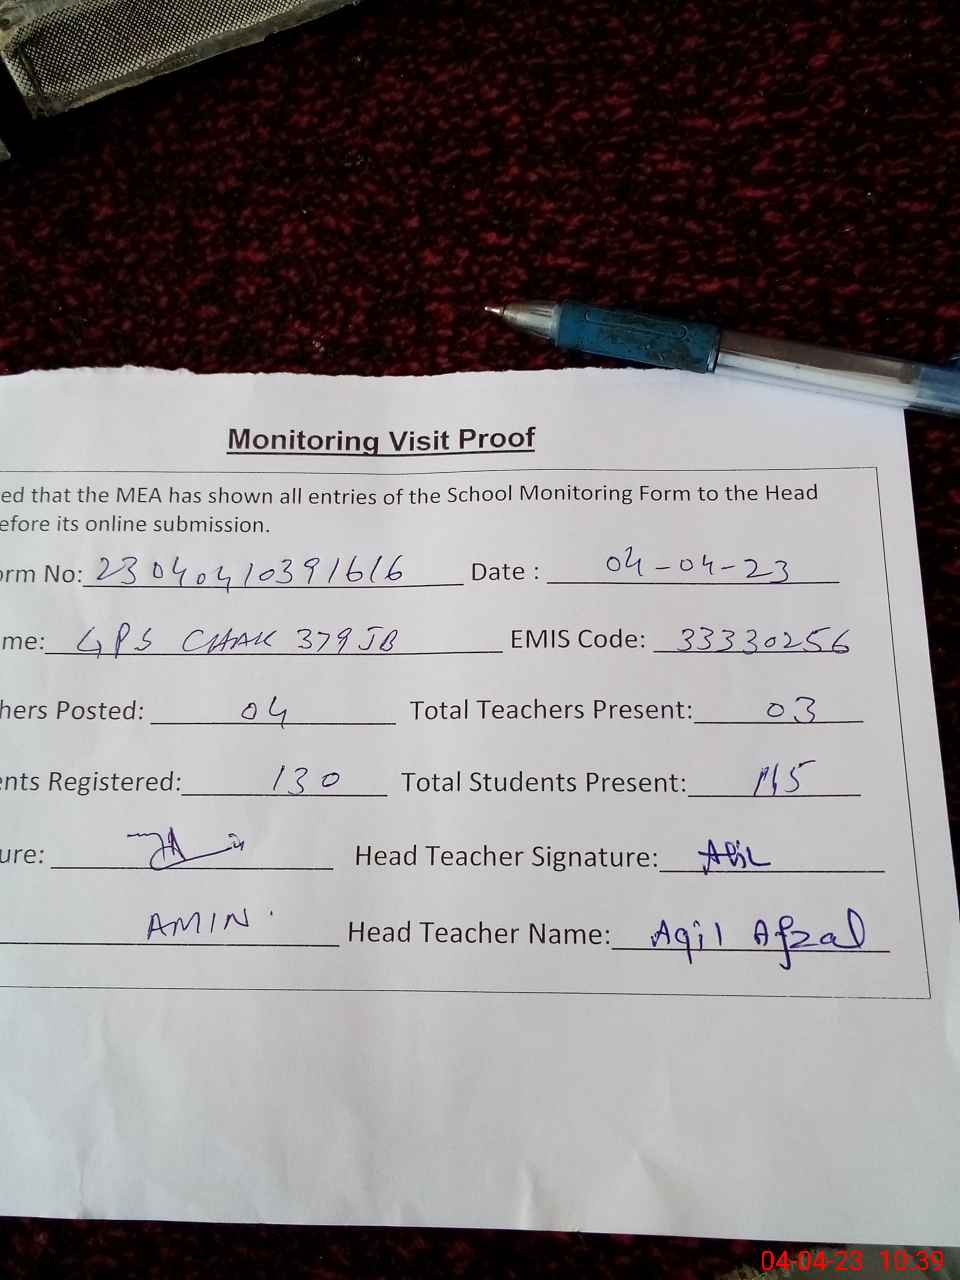 Monitoring Visit Proof
ed that the MEA has shown all entries of the School Monitoring Form to the Head
efore its online submission.
orm No: 23040410391616 Date : 04-04-23
me: GPS CHAK 379JB EMIS Code: 33330256
hers Posted: 04 Total Teachers Present: 03
ents Registered: 130 Total Students Present: 115
ure: Head Teacher Signature:
AMIN Head Teacher Name: Aqil Afzal
04-04-23 10:39